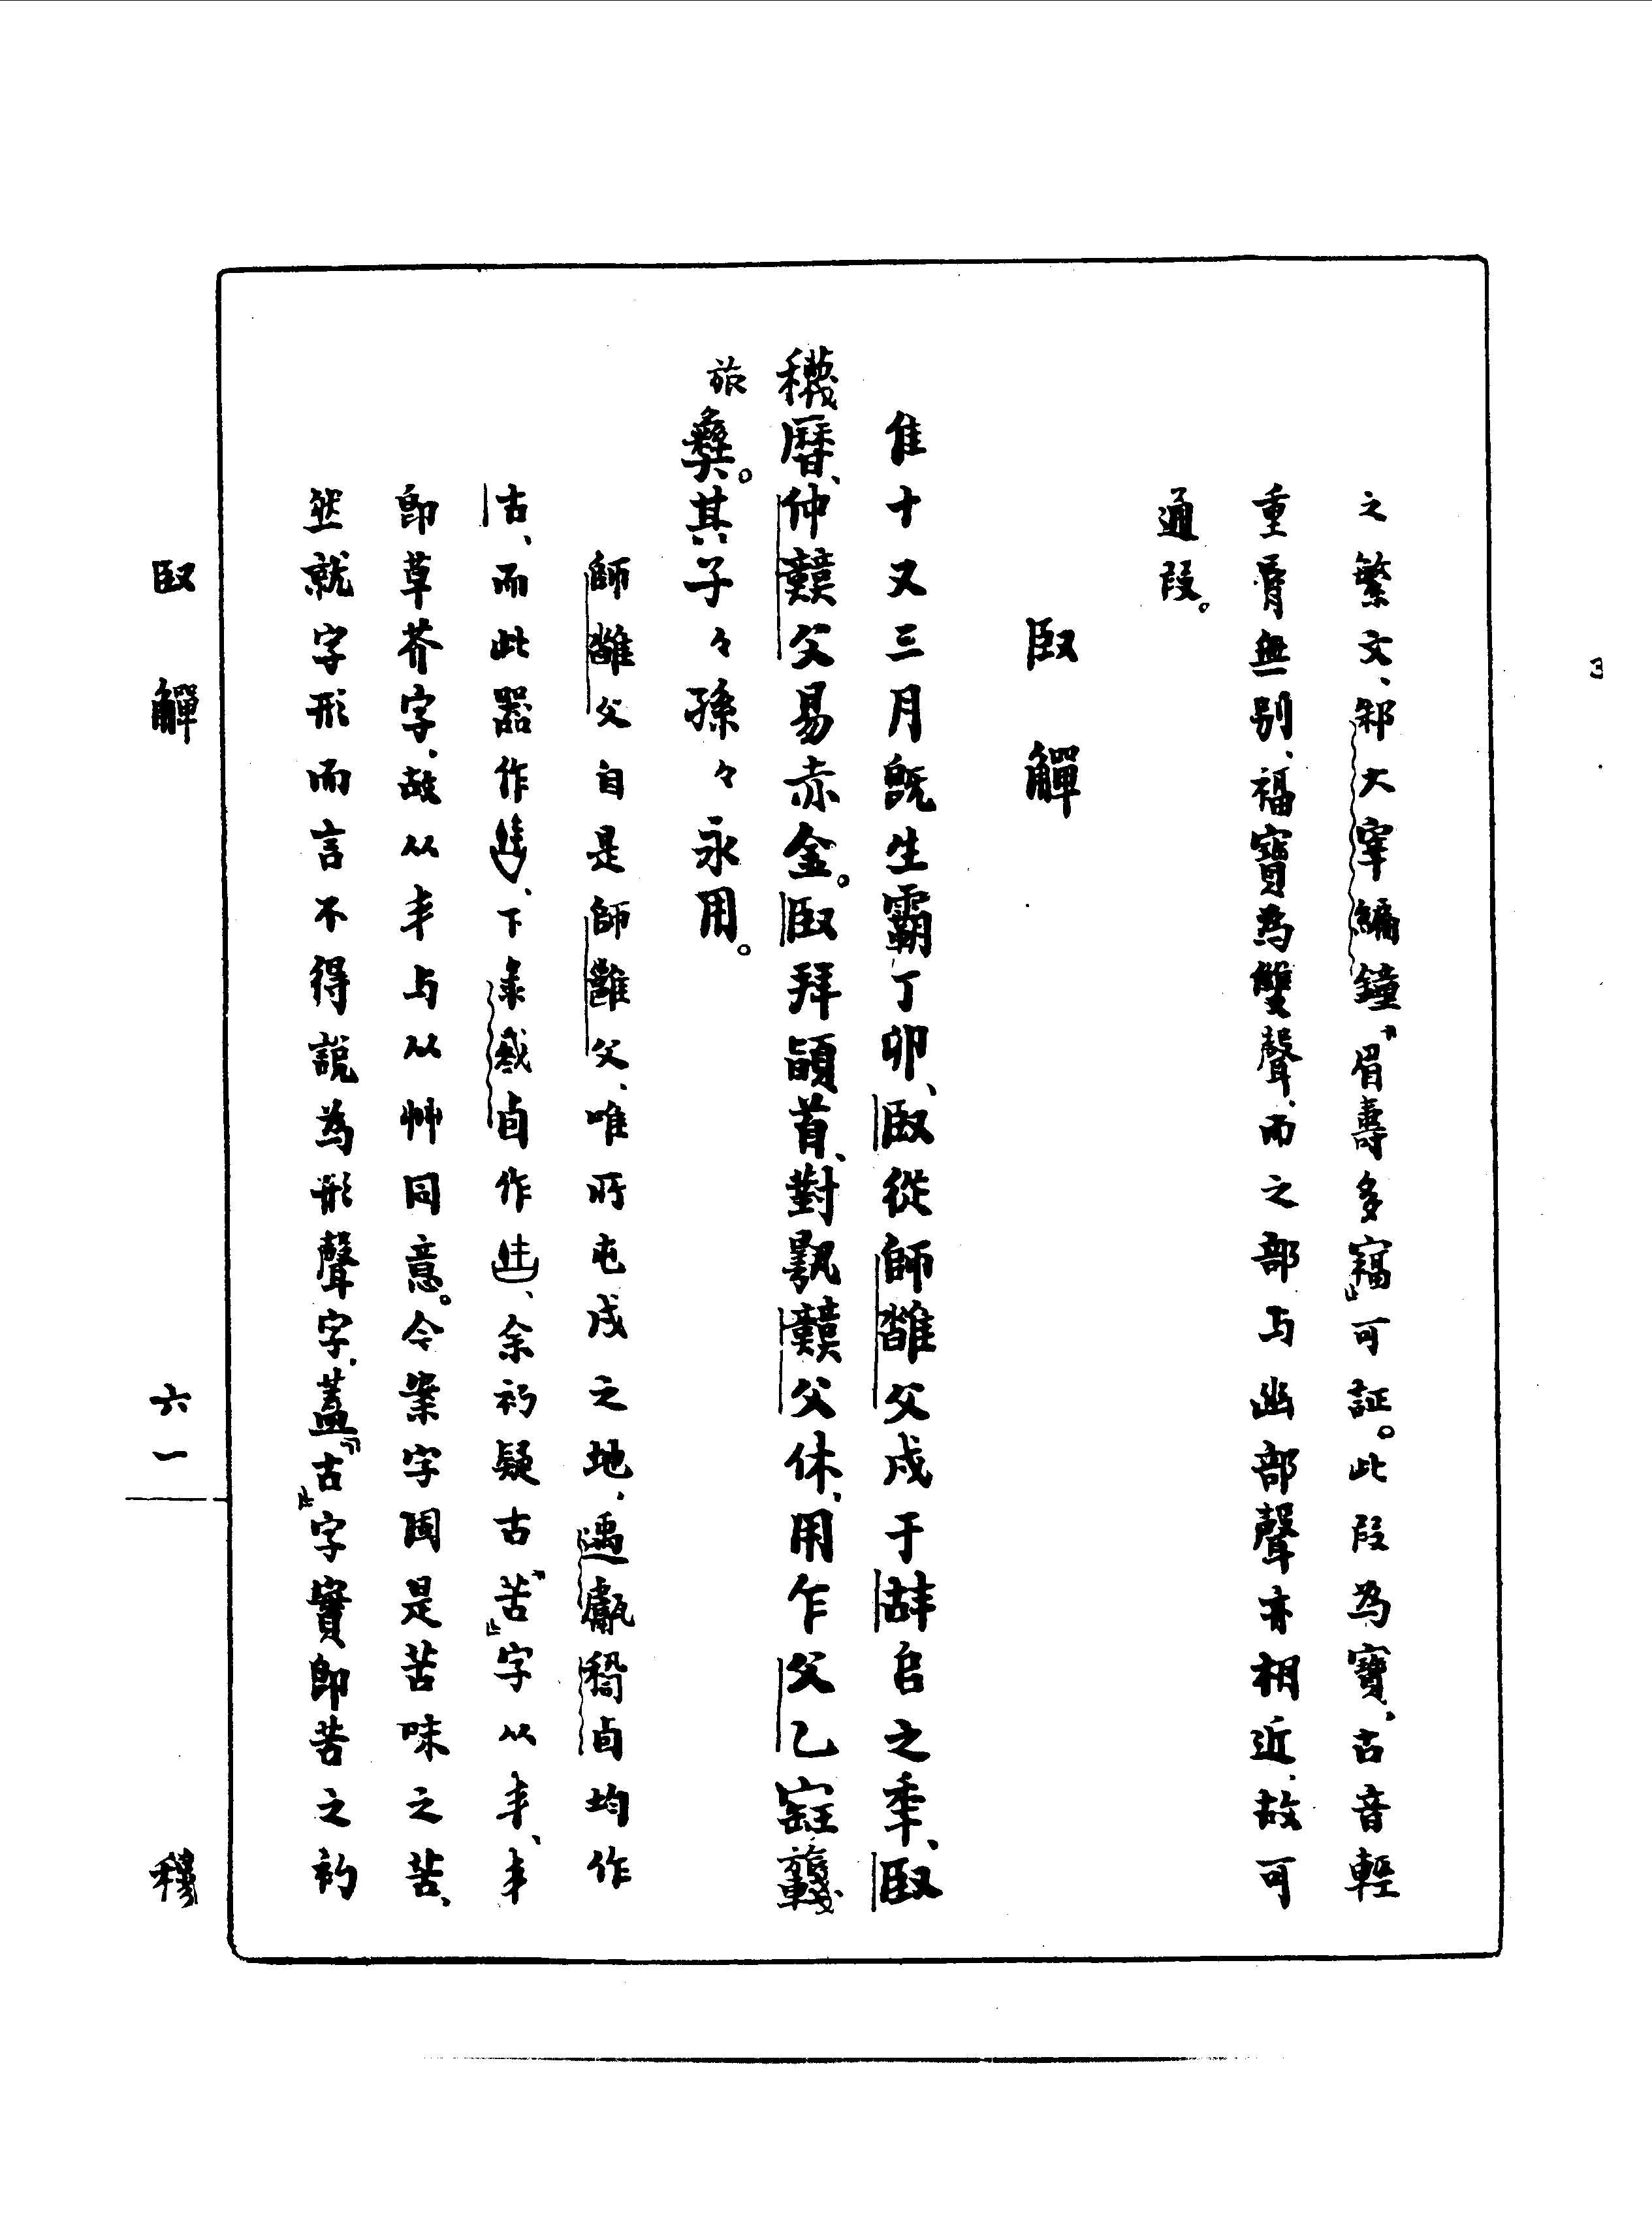 之繁文、邾大宰編鐘「眉壽多寚」可証。此叚為寶、古音輕
重脣無別、福寶為雙聲、而之部与幽部聲亦相近、故可
通叚。
臤觶
隹十又三月既生霸丁卯、臤從師雝父戍于𦺇𠂤之年、臤
穖曆、仲競父易赤金。臤拜䭫首、對𩁹競父休、用乍父乙寚
旅彝。其子々孫々永用。
師雝父自是師雝父、唯所屯戍之地、遇甗稽卣均作
古、而此器作、下彔㦰卣作、余初疑古「苦」字从丯、丯
即草芥字、故从丯与从艸同意。今案字固是苦味之苦、
然就字形而言不得說為形聲字、蓋「古」字實即苦之初
臤觶
六一
穆